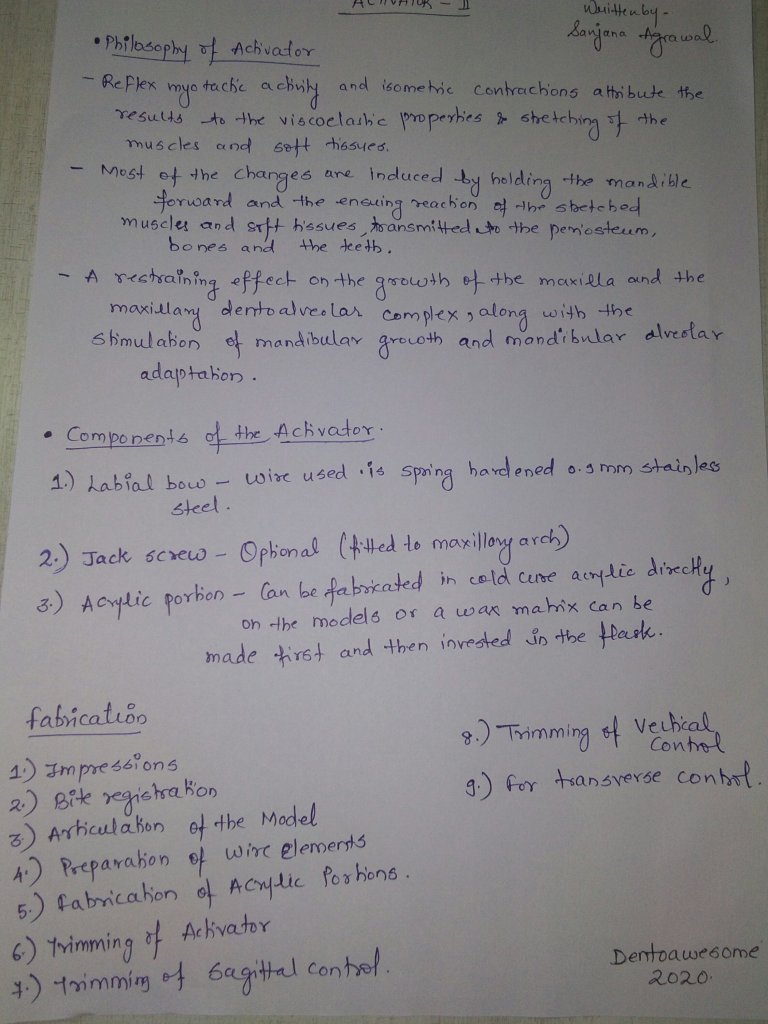 ACTIVATOR - II
Written by -
Sanjana Agrawal
• Philosophy of Activator
- Reflex myotactic activity and isometric contractions attribute the
results to the viscoelastic properties & stretching of the
muscles and soft tissues.
- Most of the changes are induced by holding the mandible
forward and the ensuing reaction of the stretched
muscles and soft tissues, transmitted to the periosteum,
bones and the teeth.
- A restraining effect on the growth of the maxilla and the
maxillary dentoalveolar complex, along with the
stimulation of mandibular growth and mandibular alveolar
adaptation.
• Components of the Activator.
1.) Labial bow - wire used is spring hardened 0.9 mm stainless
steel.
2.) Jack screw - Optional (fitted to maxillary arch)
3.) Acrylic portion - Can be fabricated in cold cure acrylic directly,
on the models or a wax matrix can be
made first and then invested in the flask.
fabrication
1.) Impressions
2.) Bite registration
3.) Articulation of the Model
4.) Preparation of wire elements
5.) fabrication of Acrylic Portions.
6.) Trimming of Activator
7.) Trimming of Sagittal control.
8.) Trimming of Vertical
Control
9.) for transverse control.
Dentoawesome
2020.